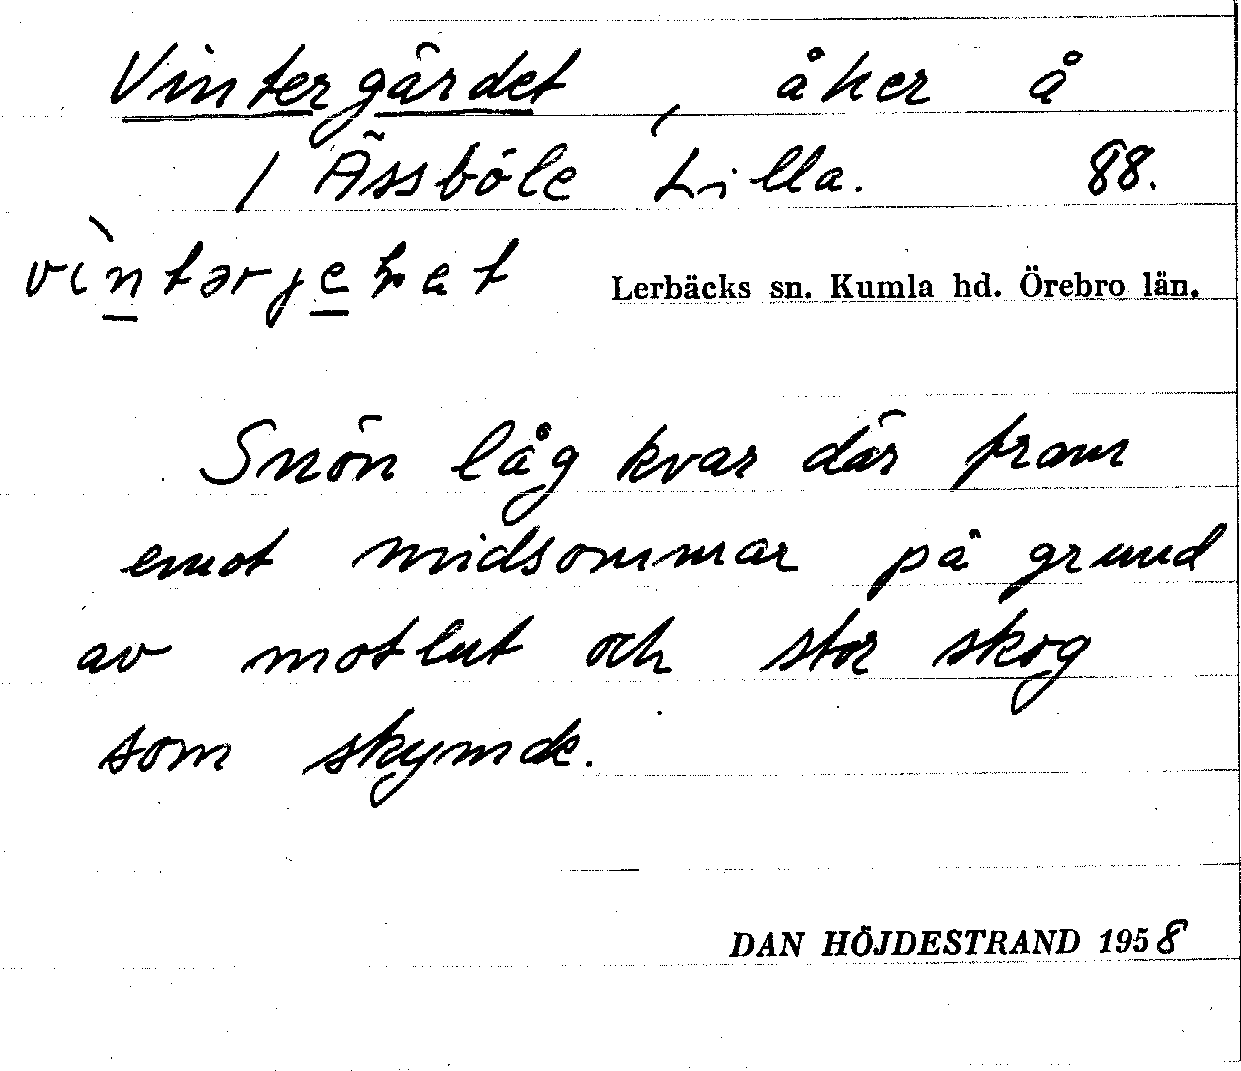 Vintergärdet, åker å
1 Ässböle Lilla. 88.
Lerbäcks sn. Kumla hd. Örebro län.
Snön låg kvar där fram
emot midsommar på grund
av motlut och stor skog
som skymde.
DAN HÖJDESTRAND 1958